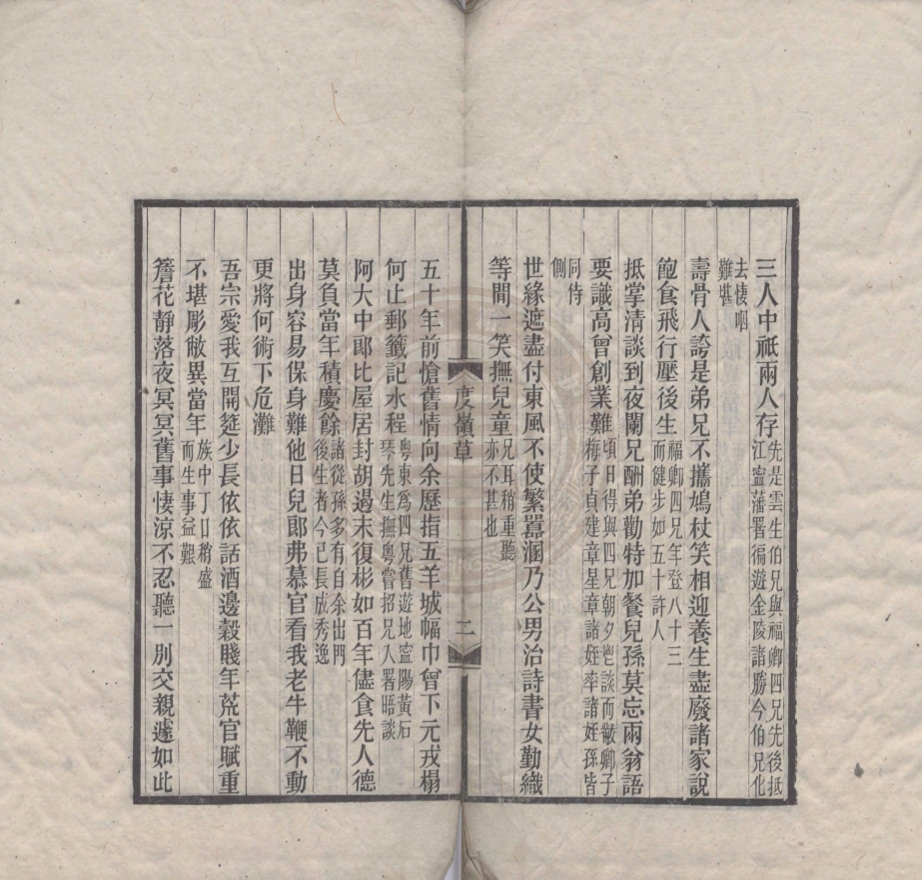 三人中祇兩人存先是雲生伯兄與福卿四兄先後抵江寍藩署徧遊金陵諸勝今伯兄化
去悽咽難甚
壽骨人誇是弟兄不攜鳩杖笑相迎養生盡廢諸家說
飽食飛行壓後生福卿四兄年登八十三而健步如五十許人
抵掌清談到夜闌兄酬弟勸特加餐兒孫莫忘兩翁語
要識高曾創業難頃日得與四兄朝夕鬯談而黻卿子梅子貞建章星章諸姪率諸姪孫皆
同侍側
世緣遮盡付東風不使繁囂溷乃公男治詩書女勤織
等閒一笑撫兒童兄耳稍重聽亦不甚也
度嶺草
二
五十年前愴舊情向余歷指五羊城幅巾曾下元戎榻
何止郵籤記水程粵東爲四兄舊遊地寍陽黃石琴先生撫粵嘗招兄入署晤談
阿大中郎比屋居封胡遏末復彬如百年儘食先人德
莫負當年積慶餘諸從孫多有自余出門後生者今已長成秀逸
出身容易保身難他日兒郎弗慕官看我老牛鞭不動
更將何術下危灘
吾宗愛我互開筵少長依依話酒邊穀賤年荒官賦重
不堪彫敝異當年族中丁口稍盛而生事益艱
簷花靜落夜冥冥舊事悽涼不忍聽一別交親遽如此